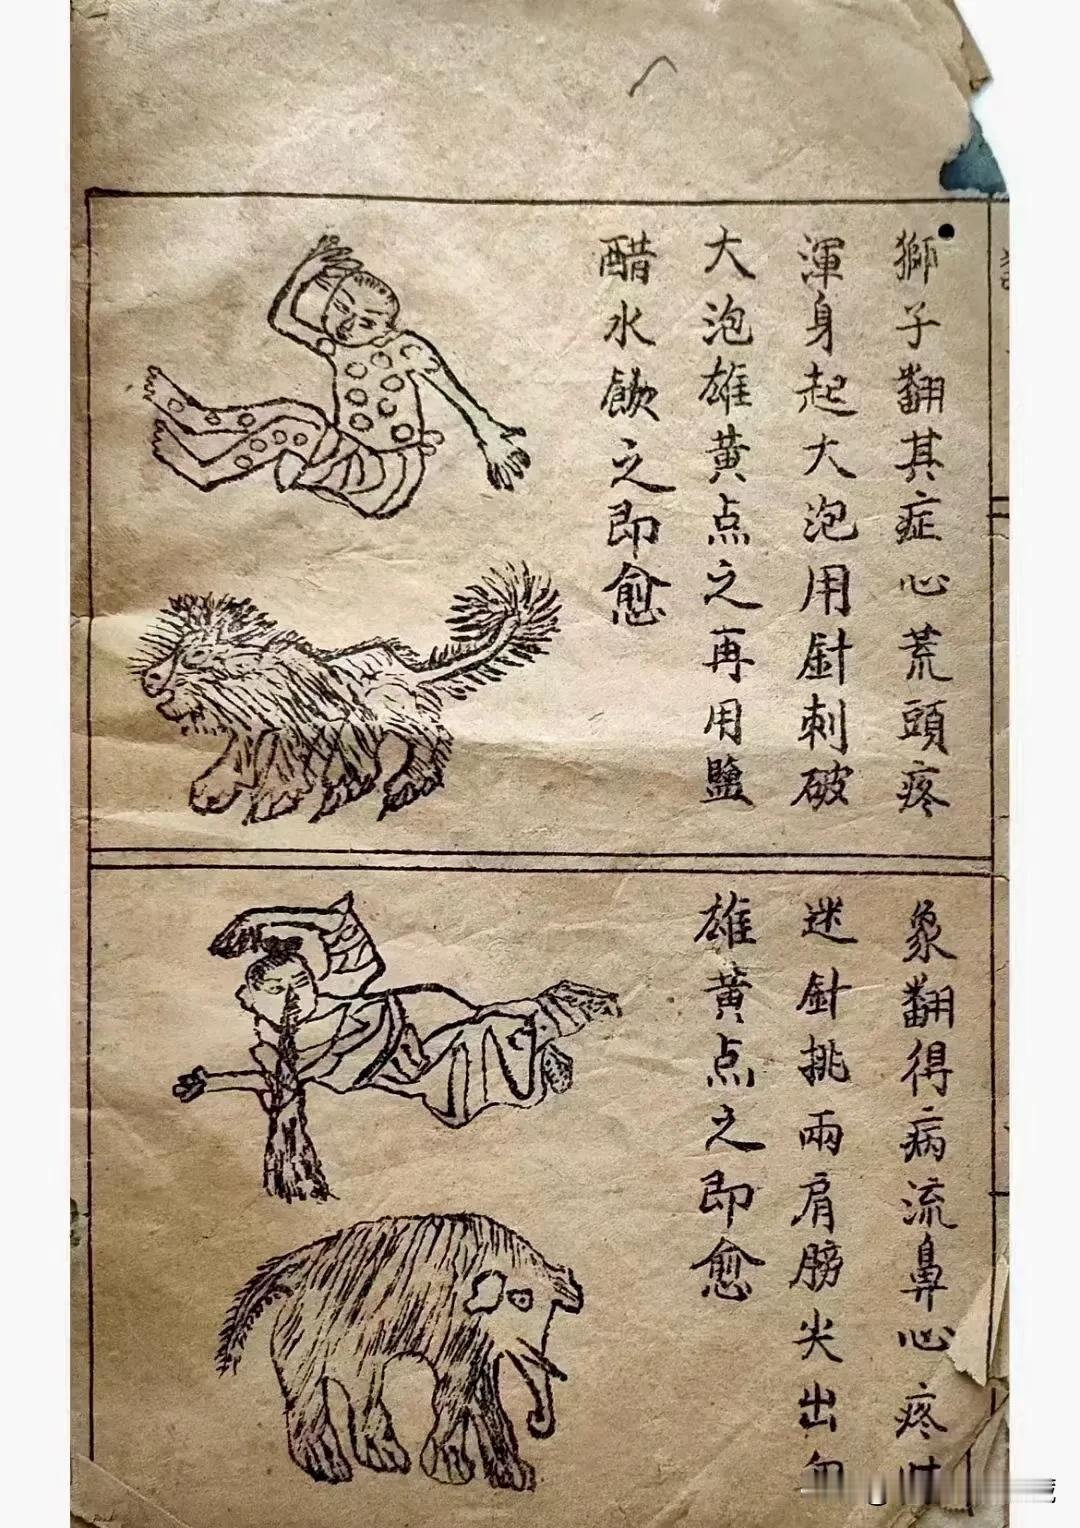 獅子翻其症心荒頭疼
渾身起大泡用針刺破
大泡雄黄点之再用鹽
醋水飲之即愈
象翻得病流鼻心疼
迷針挑兩肩膀尖出
雄黄点之即愈